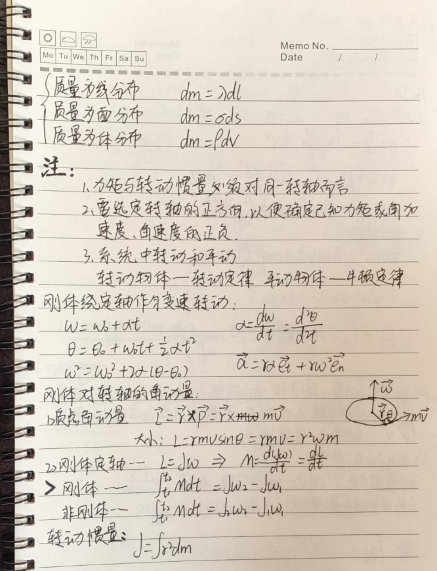 Memo No.
Mo Tu We Th Fr Sa Su
Date / /
质量为线分布 dm = λdl
质量为面分布 dm = σds
质量为体分布 dm = ρdv
注:
1、力矩与转动惯量必须对同一转轴而言
2、要选定转轴的正方向,以便确定已知力矩或角加
速度、角速度的正负.
3、系统中转动和平动
转动物体—转动定律 平动物体—牛顿定律
刚体绕定轴作匀变速转动:
ω = ω₀ + αt α = dω/dt = d²θ/d²t
θ = θ₀ + ω₀t + ½αt²
ω² = ω₀² + 2α(θ-θ₀) a⃗ = rαe⃗t + rω²e⃗n
刚体对转轴的角动量:
1>质点角动量 L⃗ = r⃗×p⃗ = r⃗×mv⃗
大小: L = rmvsinθ = rmv = r²ωm
ω⃗
r⃗ θ mv⃗
2>刚体定轴— L = Jω ⇒ M = d(Jω)/dt = dL/dt
> 刚体 — ∫t₁t₂ Mdt = Jω₂ - Jω₁
非刚体— ∫t₁t₂ Mdt = J₂ω₂ - J₁ω₁
转动惯量: J = ∫r²dm